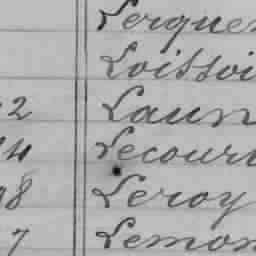 Lerque
Loissoi
2 Laun
4 Lecour
8 Leroy
7 Lemon